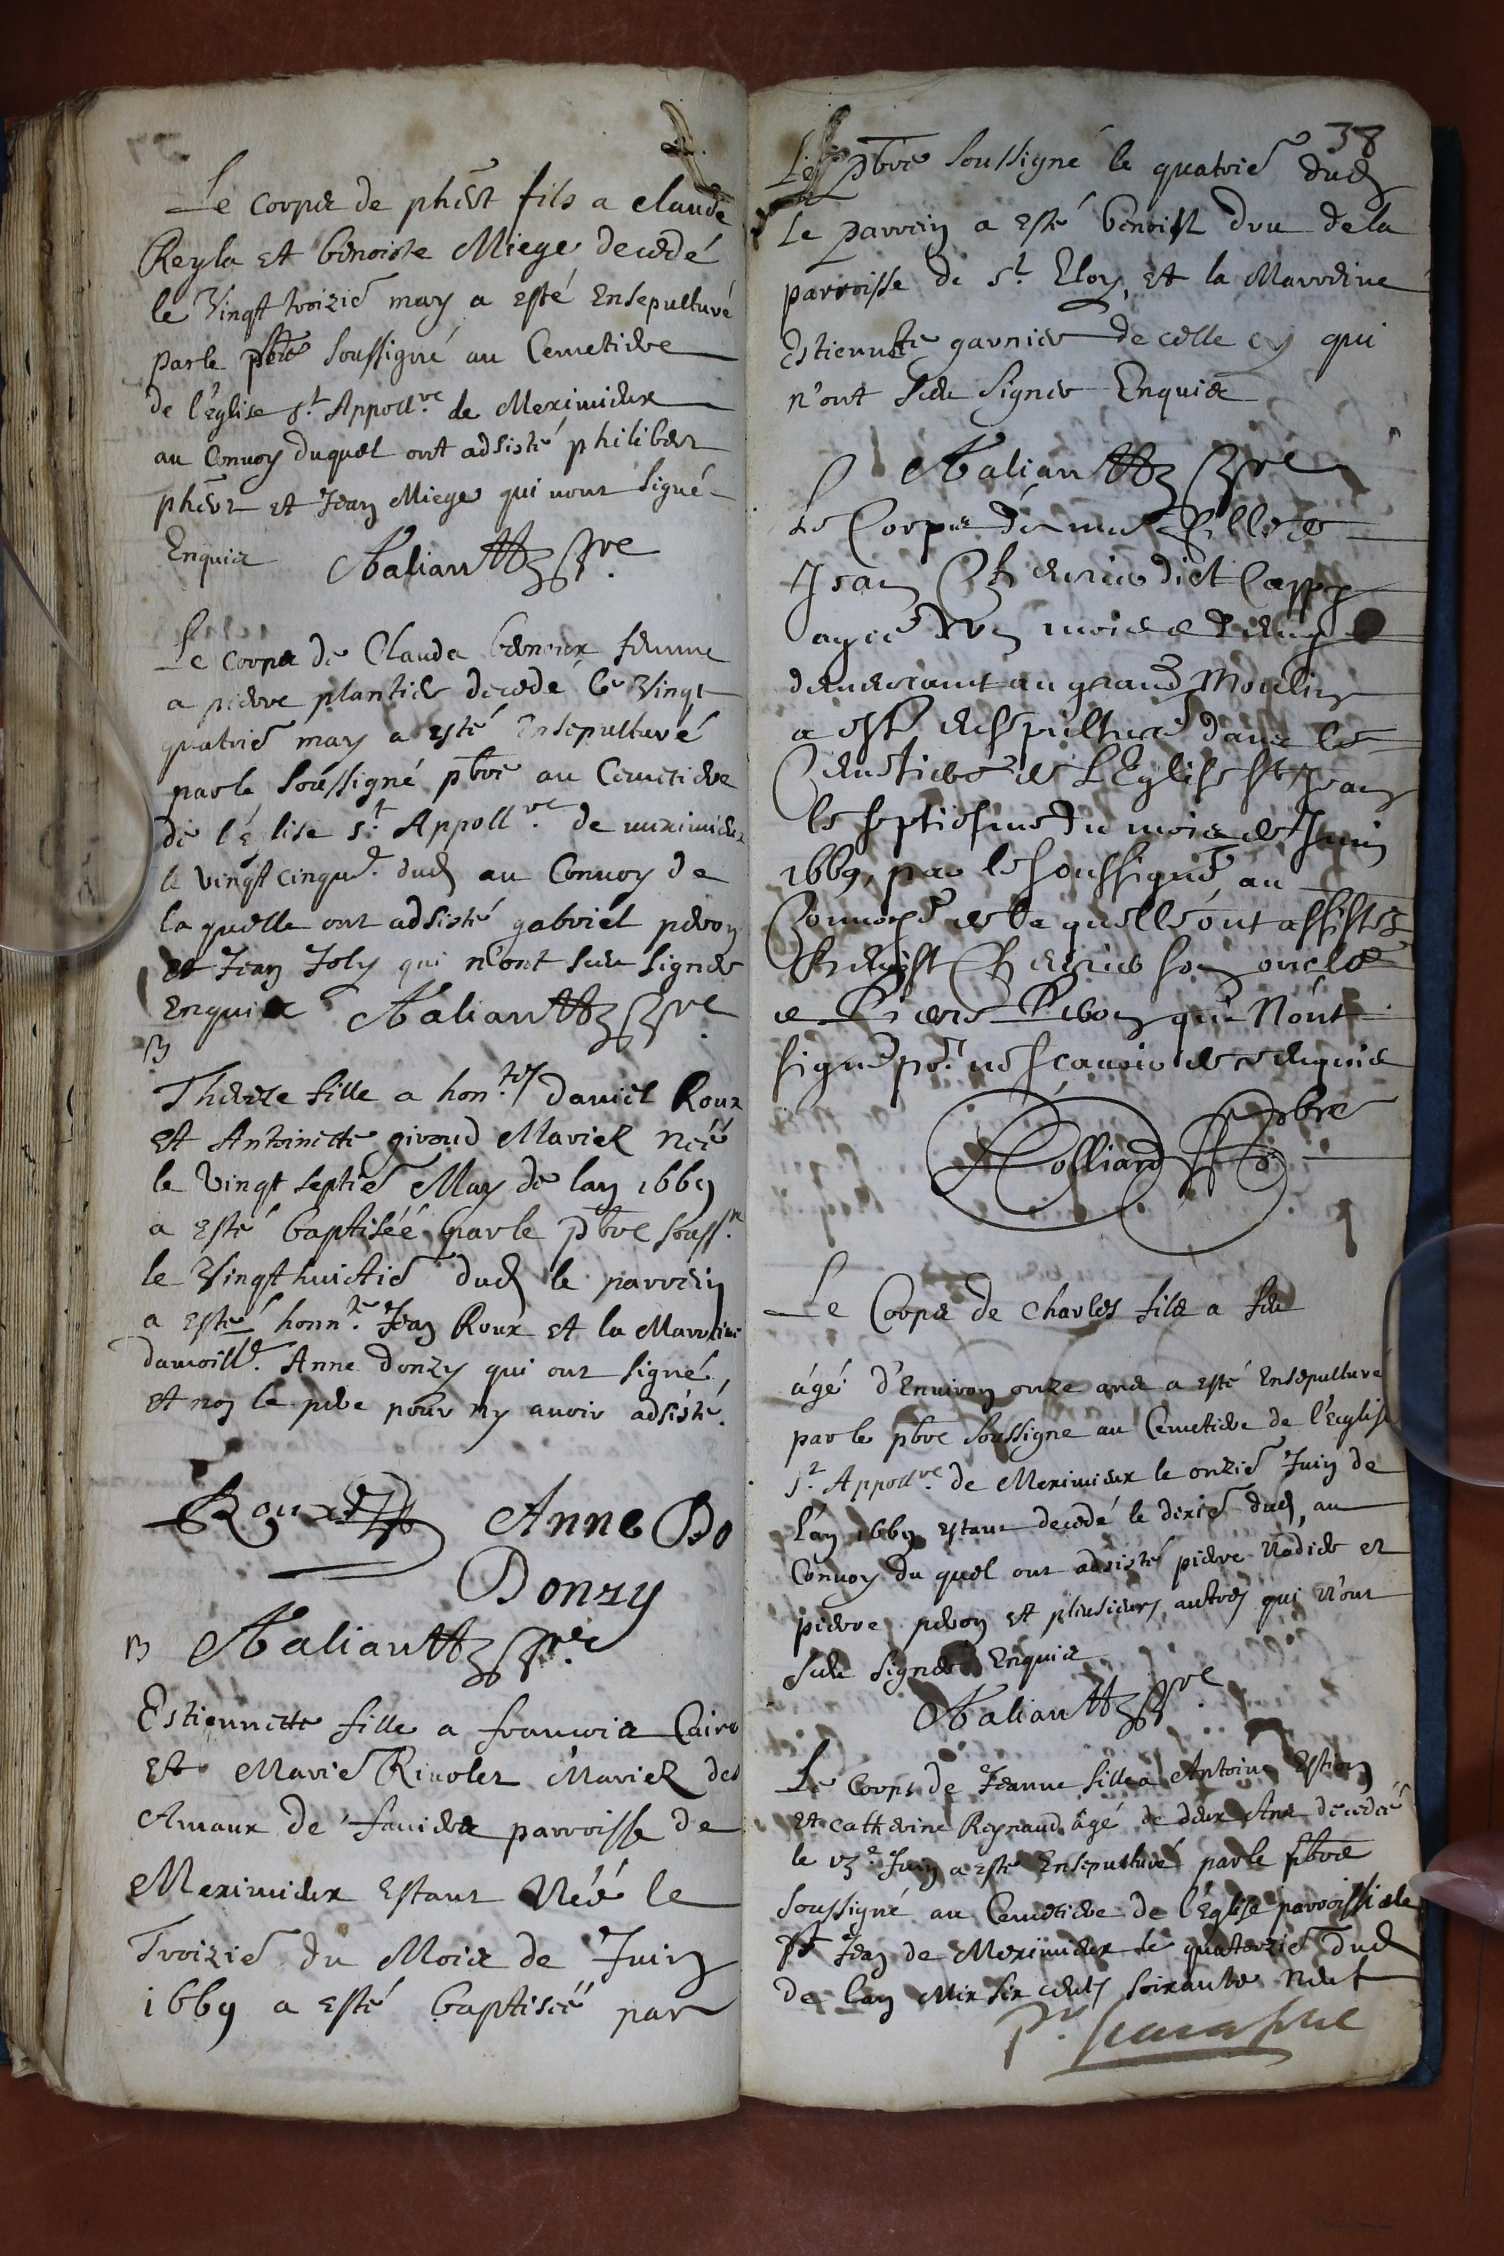 Le corps de phe͂rt fils a claude
Reyla et benoiste Miege decedé
le vingt troizie͂ may a esté Ensepulturé
par le pbre͂ soussigné au Cemetiere
de l'église s.t Appoll.re de Meximieux
au Convoy duquel ont adsisté philibert
phe͂rt et Jean Miege qui nont signé
Enquis Valiantt pre
Le corps de Clauda femme
a pierre plantier decedé le vingt
quatrie͂ may a esté Ensepulturé
par le soussigné pbre͂ au Cimetiere
de l'église s.t Appoll.re de meximieux
le vingt cinqu.e dud au Convoy de
laquelle ont adsisté gabriel peron
et Jean Joly qui n'ont sceu signer
Enquis Valiantt pre
B
Therese fille a hon.tes Daniel Roux
et Antoinette giroud Mariez néé
le vingt septie͂ May de lan 1669
a esté baptiséé par le pbre͂ souss.né
le vingt huictie͂ dud le parrein
a esté honn.te Jean Roux et la Marreine
damoill.e Anne Donzy qui ont signé,
et non le pere pour ny avoir adsisté.
Roux Anne Do
Donzy
B Valiantt pre
Estiennette fille a francois Cairo
et Marie Rivolet Mariez des
Amaux de favier parroisse de
Meximieux estant Néé le
Troizie͂ du Mois de Juin
1669 a esté baptiséé par
38
Le pbre͂ soussigné le quatrie͂ dud
Le parrein a esté benoist dru de la
parroisse de s.t Eloy, et la Marreine
Estiennette garnier de celle cy qui
n'ont sceu signer Enquis
Valiantt pre
Le Corps fille de
Jean dict
agée d'un mois
demeurant au grand Moulin
a esté ensepulturé dans le
Cemetiere de l'Eglise st Jean
le septiesme du mois de Juin
1669, par le soussigné, au
Convoye de la quelle ont assisté
son oncle
et Pierre Peron qui N'ont
signé po.r ne scavoir de ce enquis
Colliard pbre
Le Corps de charles fils a feu
âgé d'Environ onze ans a esté Ensepulturé
par le pbre soussigne au Cemetiere de l'Eglise
s.t Appoll.re de Meximieux le onzie͂ Juin de
l'an 1669 estant decedé le dixie͂ dud, au
Convoy du quel ont adsisté pierre Nodier et
pierre peron et plusieurs autres qui n'ont
sceu signer Enquis
Valiantt pre
Le Corps de Jeanne fille a Antoine Estion
et catherine Reynaud âgé de deux Ans decedéé
le 13e Juin a esté Ensepulturé par le pbre͂
soussigné au Cemetiere de l'église parroissiale
st Jean de Meximieux le quatorzie͂ dud
de lan Mix six cents soixante neuf